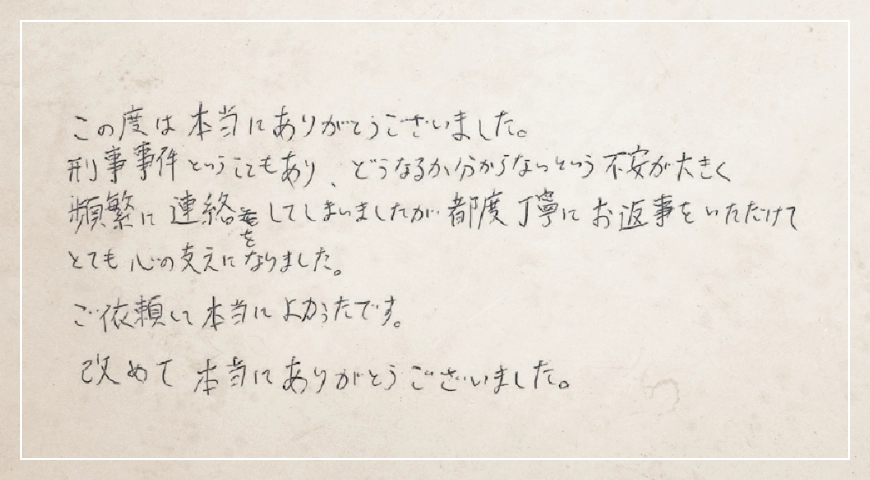 この度は本当にありがとうございました。
刑事事件ということもあり、どうなるか分からないという不安が大きく
頻繁に連絡をしてしまいましたが都度丁寧にお返事をいただけて
とても心の支えになりました。
ご依頼して本当によかったです。
改めて本当にありがとうございました。